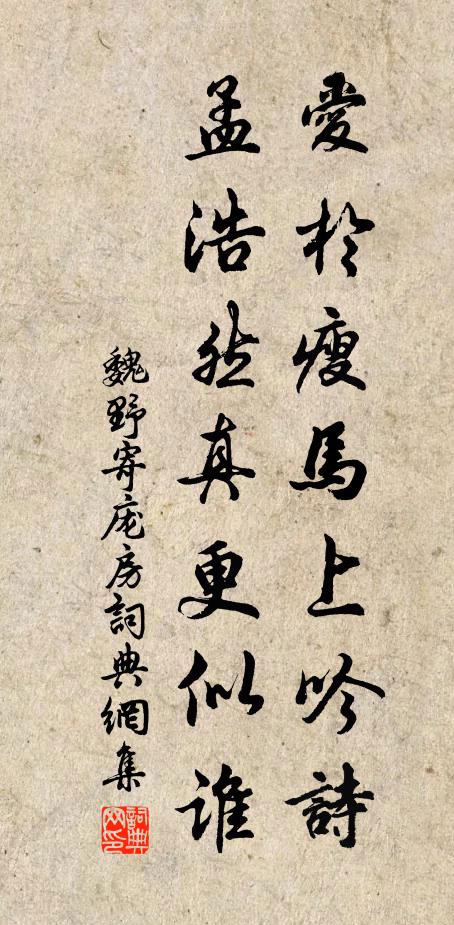 愛於瘦馬上吟詩
孟浩然真更似誰
魏野寄庬房詞典網集
詞典
网印